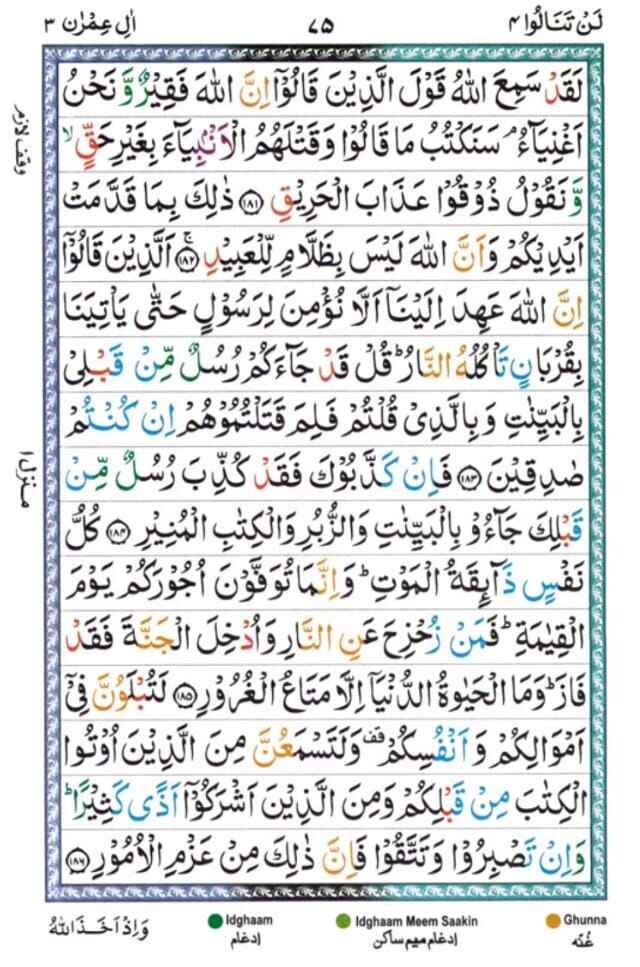 لَنْ تَنَالُوا ٤ ٧٥ اٰلِ عِمْرٰن ٣
لَقَدْ سَمِعَ اللّٰهُ قَوْلَ الَّذِيْنَ قَالُوْۤا اِنَّ اللّٰهَ فَقِيْرٌ وَّ نَحْنُ
اَغْنِيَآءُ ۘ سَنَكْتُبُ مَا قَالُوْا وَقَتْلَهُمُ الْاَنْۢبِيَآءَ بِغَيْرِ حَقٍّ ۙ
وَّ نَقُوْلُ ذُوْقُوْا عَذَابَ الْحَرِيْقِ ﴿۱۸۱﴾ ذٰلِكَ بِمَا قَدَّمَتْ
اَيْدِيْكُمْ وَاَنَّ اللّٰهَ لَيْسَ بِظَلَّامٍ لِّلْعَبِيْدِ ﴿۱۸۲﴾ۚ اَلَّذِيْنَ قَالُوْۤا
اِنَّ اللّٰهَ عَهِدَ اِلَيْنَاۤ اَلَّا نُؤْمِنَ لِرَسُوْلٍ حَتّٰى يَاْتِيَنَا
بِقُرْبَانٍ تَاْكُلُهُ النَّارُ ؕ قُلْ قَدْ جَآءَكُمْ رُسُلٌ مِّنْ قَبْلِيْ
بِالْبَيِّنٰتِ وَ بِالَّذِيْ قُلْتُمْ فَلِمَ قَتَلْتُمُوْهُمْ اِنْ كُنْتُمْ
صٰدِقِيْنَ ﴿۱۸۳﴾ فَاِنْ كَذَّبُوْكَ فَقَدْ كُذِّبَ رُسُلٌ مِّنْ
قَبْلِكَ جَآءُوْ بِالْبَيِّنٰتِ وَالزُّبُرِ وَالْكِتٰبِ الْمُنِيْرِ ﴿۱۸۴﴾ كُلُّ
نَفْسٍ ذَآئِقَةُ الْمَوْتِ ؕ وَاِنَّمَا تُوَفَّوْنَ اُجُوْرَكُمْ يَوْمَ
الْقِيٰمَةِ ؕ فَمَنْ زُحْزِحَ عَنِ النَّارِ وَاُدْخِلَ الْجَنَّةَ فَقَدْ
فَازَ ؕ وَمَا الْحَيٰوةُ الدُّنْيَاۤ اِلَّا مَتَاعُ الْغُرُوْرِ ﴿۱۸۵﴾ لَتُبْلَوُنَّ فِيْۤ
اَمْوَالِكُمْ وَ اَنْفُسِكُمْ ۟ وَلَتَسْمَعُنَّ مِنَ الَّذِيْنَ اُوْتُوا
الْكِتٰبَ مِنْ قَبْلِكُمْ وَمِنَ الَّذِيْنَ اَشْرَكُوْۤا اَذًى كَثِيْرًا ؕ
وَاِنْ تَصْبِرُوْا وَتَتَّقُوْا فَاِنَّ ذٰلِكَ مِنْ عَزْمِ الْاُمُوْرِ ﴿۱۸۶﴾
وقف لازم
منزل ۱
Ghunna Idghaam Meem Saakin Idghaam
غُنّه ادغام میم ساکن ادغام
وَاِذْ اَخَذَ اللّٰهُ